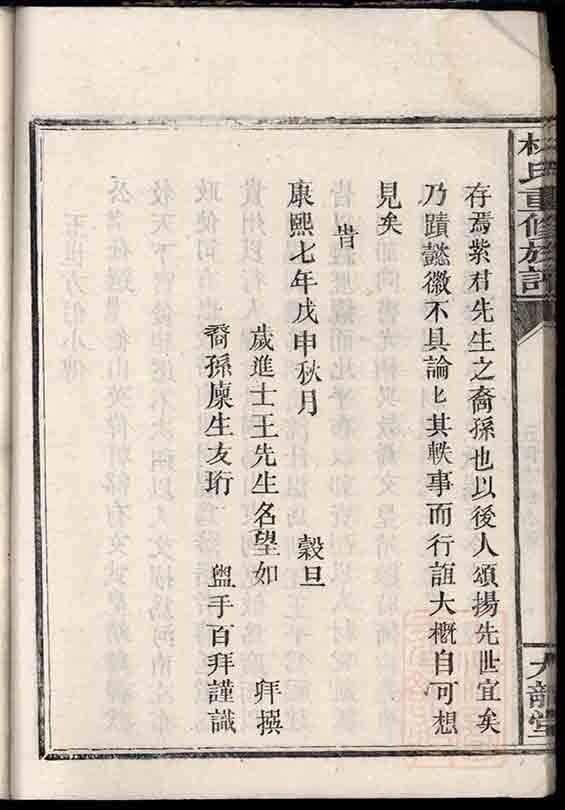 存焉紫君先生之裔孫也以後人頌揚先世宜矣
乃蹟懿徽不具論匕其軼事而行誼大概自可想
見矣
旹
康熙七年戊申秋月 穀旦
歲進士王先生名望如 拜撰
裔孫廩生友珩 盥手百拜謹識
杜氏重修族譜
大韻堂